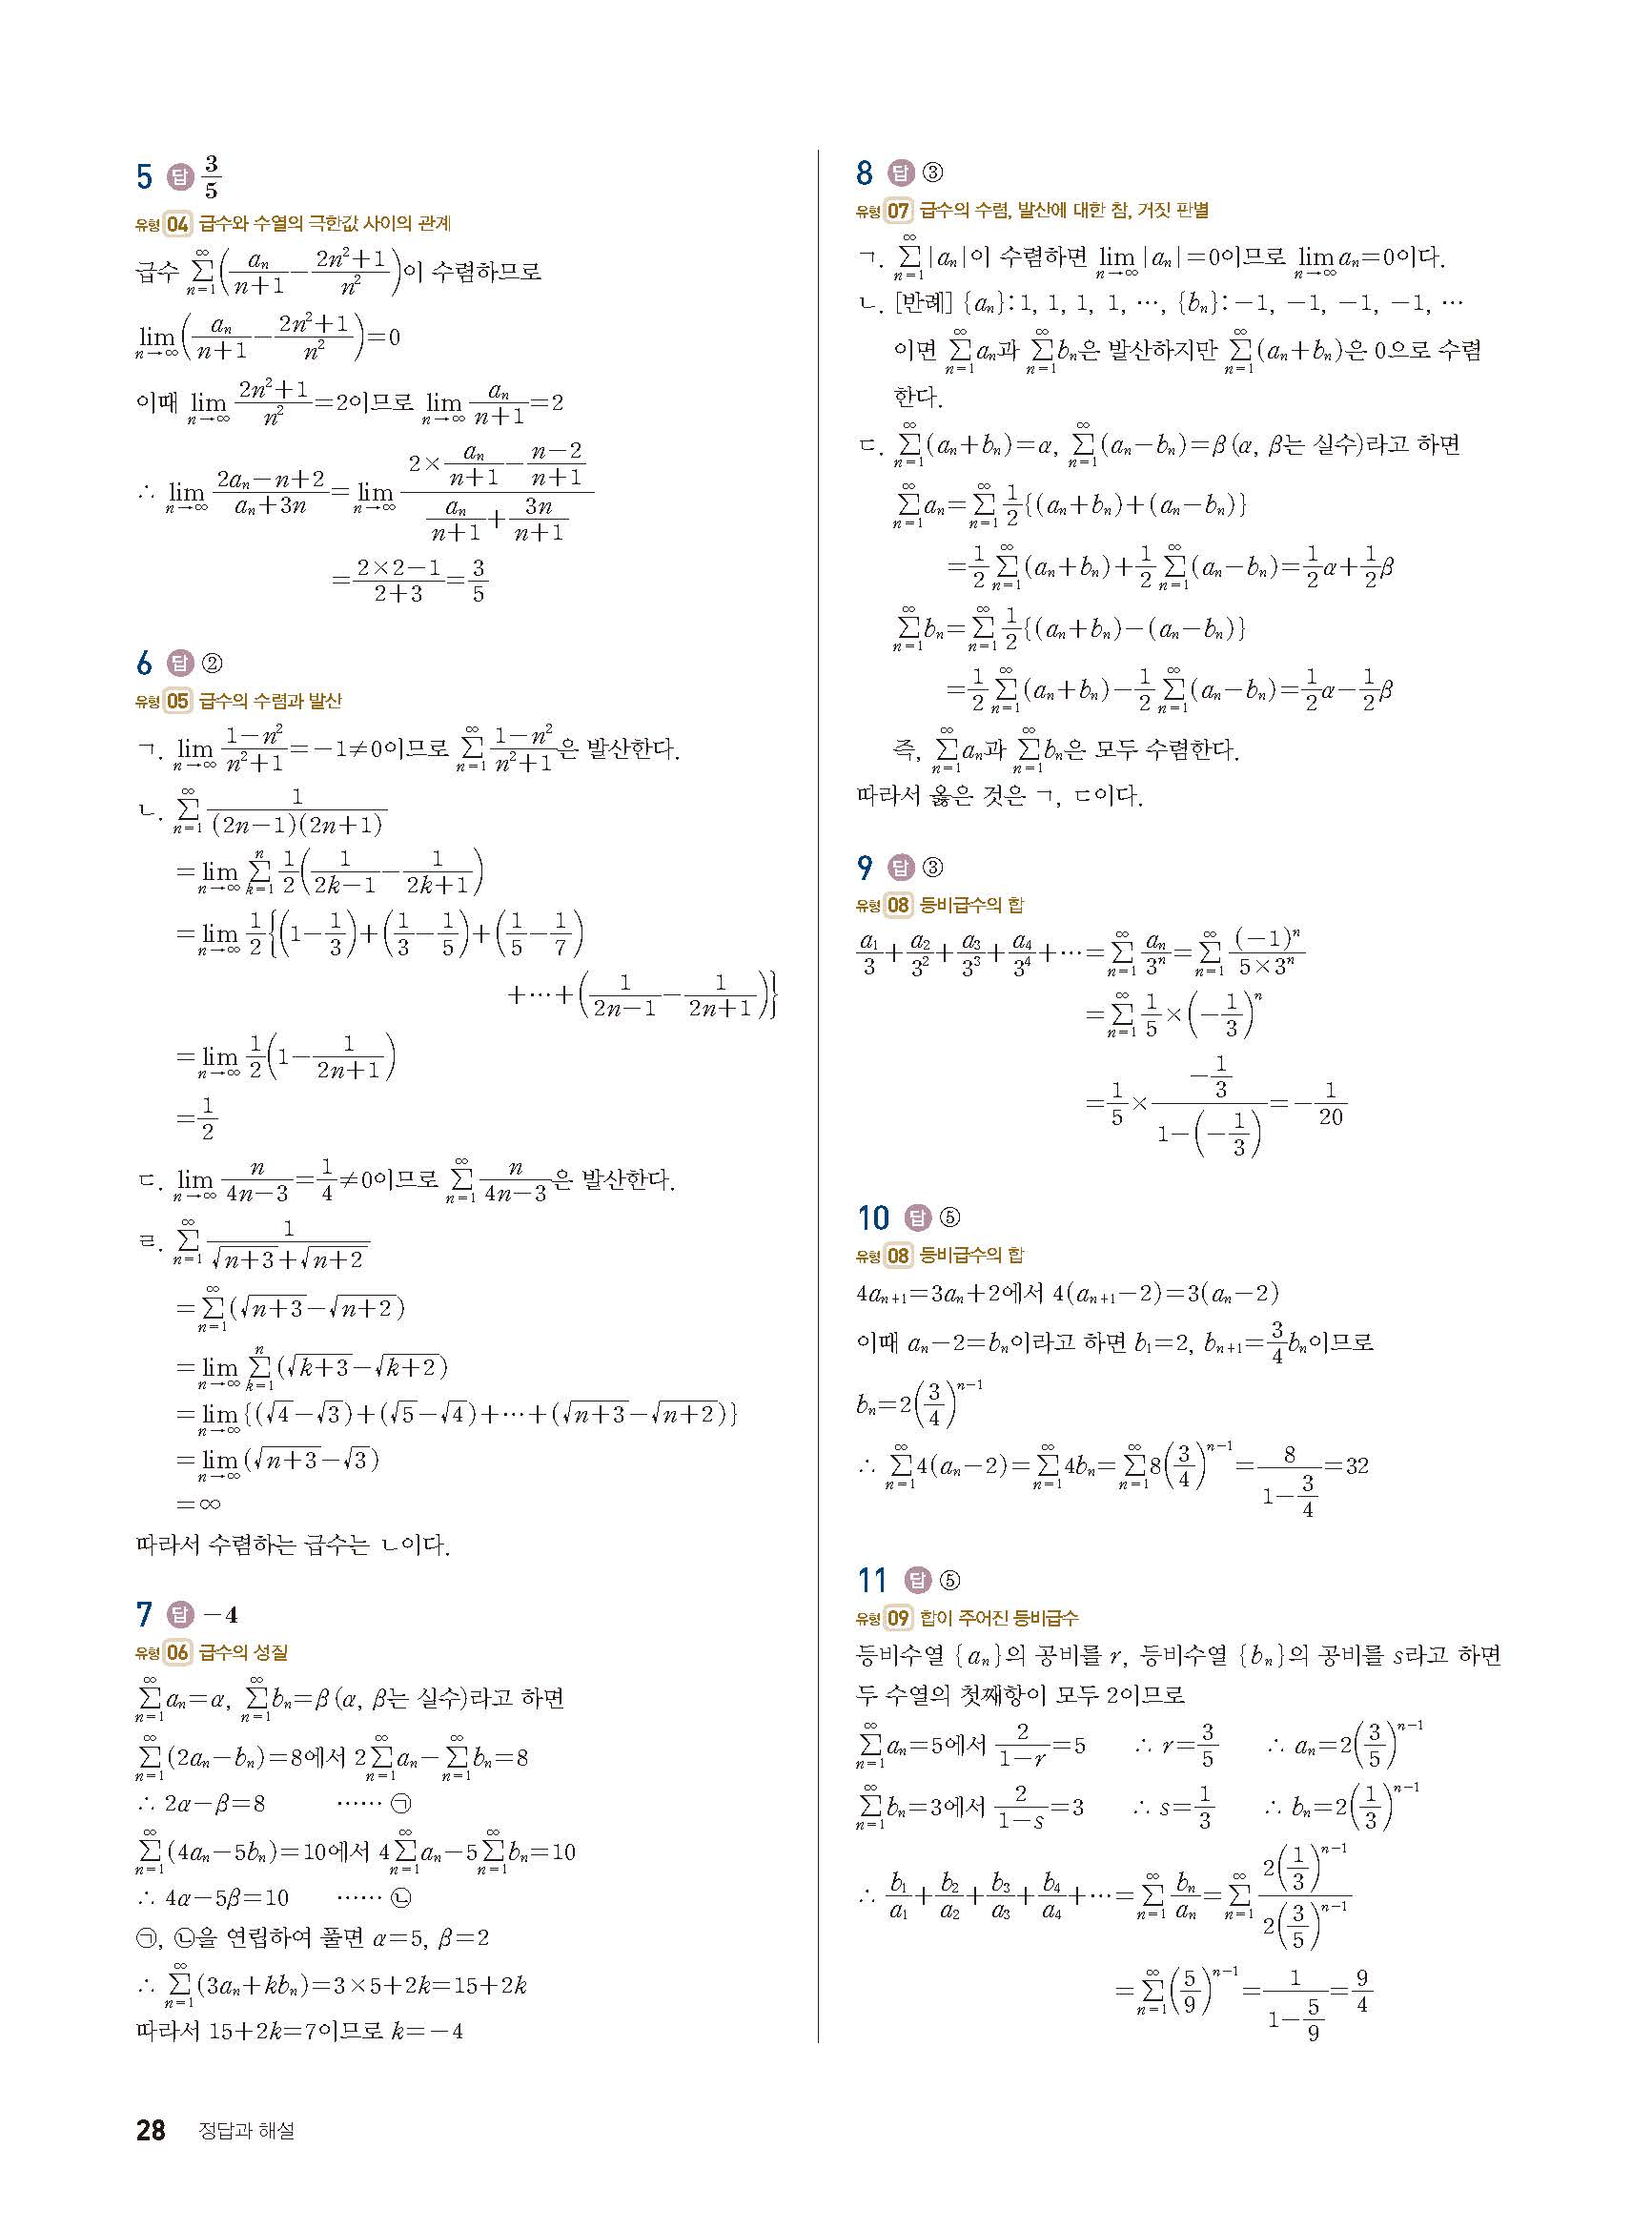 5 답 3/5
유형 04 급수와 수열의 극한값 사이의 관계
급수 ∑_{n=1}^{∞}(a_n/(n+1) − (2n²+1)/n²)이 수렴하므로
lim_{n→∞}(a_n/(n+1) − (2n²+1)/n²)=0
이때 lim_{n→∞} (2n²+1)/n²=2이므로 lim_{n→∞} a_n/(n+1)=2
∴ lim_{n→∞} (2a_n−n+2)/(a_n+3n)=lim_{n→∞} (2×a_n/(n+1) − (n−2)/(n+1))/(a_n/(n+1) + 3n/(n+1))
=(2×2−1)/(2+3)=3/5
6 답 ②
유형 05 급수의 수렴과 발산
ㄱ. lim_{n→∞} (1−n²)/(n²+1)=−1≠0이므로 ∑_{n=1}^{∞} (1−n²)/(n²+1)은 발산한다.
ㄴ. ∑_{n=1}^{∞} 1/((2n−1)(2n+1))
=lim_{n→∞} ∑_{k=1}^{n} 1/2(1/(2k−1) − 1/(2k+1))
=lim_{n→∞} 1/2{(1−1/3)+(1/3−1/5)+(1/5−1/7)
+⋯+(1/(2n−1) − 1/(2n+1))}
=lim_{n→∞} 1/2(1−1/(2n+1))
=1/2
ㄷ. lim_{n→∞} n/(4n−3)=1/4≠0이므로 ∑_{n=1}^{∞} n/(4n−3)은 발산한다.
ㄹ. ∑_{n=1}^{∞} 1/(√(n+3)+√(n+2))
=∑_{n=1}^{∞}(√(n+3)−√(n+2))
=lim_{n→∞} ∑_{k=1}^{n}(√(k+3)−√(k+2))
=lim_{n→∞}{(√4−√3)+(√5−√4)+⋯+(√(n+3)−√(n+2))}
=lim_{n→∞}(√(n+3)−√3)
=∞
따라서 수렴하는 급수는 ㄴ이다.
7 답 −4
유형 06 급수의 성질
∑_{n=1}^{∞}a_n=α, ∑_{n=1}^{∞}b_n=β(α, β는 실수)라고 하면
∑_{n=1}^{∞}(2a_n−b_n)=8에서 2∑_{n=1}^{∞}a_n−∑_{n=1}^{∞}b_n=8
∴ 2α−β=8 ⋯⋯ ㉠
∑_{n=1}^{∞}(4a_n−5b_n)=10에서 4∑_{n=1}^{∞}a_n−5∑_{n=1}^{∞}b_n=10
∴ 4α−5β=10 ⋯⋯ ㉡
㉠, ㉡을 연립하여 풀면 α=5, β=2
∴ ∑_{n=1}^{∞}(3a_n+kb_n)=3×5+2k=15+2k
따라서 15+2k=7이므로 k=−4
8 답 ③
유형 07 급수의 수렴, 발산에 대한 참, 거짓 판별
ㄱ. ∑_{n=1}^{∞}|a_n|이 수렴하면 lim_{n→∞}|a_n|=0이므로 lim_{n→∞}a_n=0이다.
ㄴ. [반례] {a_n}: 1, 1, 1, 1, ⋯, {b_n}: −1, −1, −1, −1, ⋯
이면 ∑_{n=1}^{∞}a_n과 ∑_{n=1}^{∞}b_n은 발산하지만 ∑_{n=1}^{∞}(a_n+b_n)은 0으로 수렴
한다.
ㄷ. ∑_{n=1}^{∞}(a_n+b_n)=α, ∑_{n=1}^{∞}(a_n−b_n)=β(α, β는 실수)라고 하면
∑_{n=1}^{∞}a_n=∑_{n=1}^{∞} 1/2{(a_n+b_n)+(a_n−b_n)}
=1/2∑_{n=1}^{∞}(a_n+b_n)+1/2∑_{n=1}^{∞}(a_n−b_n)=1/2α+1/2β
∑_{n=1}^{∞}b_n=∑_{n=1}^{∞} 1/2{(a_n+b_n)−(a_n−b_n)}
=1/2∑_{n=1}^{∞}(a_n+b_n)−1/2∑_{n=1}^{∞}(a_n−b_n)=1/2α−1/2β
즉, ∑_{n=1}^{∞}a_n과 ∑_{n=1}^{∞}b_n은 모두 수렴한다.
따라서 옳은 것은 ㄱ, ㄷ이다.
9 답 ③
유형 08 등비급수의 합
a₁/3+a₂/3²+a₃/3³+a₄/3⁴+⋯=∑_{n=1}^{∞} a_n/3ⁿ=∑_{n=1}^{∞} (−1)ⁿ/(5×3ⁿ)
=∑_{n=1}^{∞} 1/5×(−1/3)ⁿ
=1/5×(−1/3)/(1−(−1/3))=−1/20
10 답 ⑤
유형 08 등비급수의 합
4a_{n+1}=3a_n+2에서 4(a_{n+1}−2)=3(a_n−2)
이때 a_n−2=b_n이라고 하면 b₁=2, b_{n+1}=3/4b_n이므로
b_n=2(3/4)^{n−1}
∴ ∑_{n=1}^{∞}4(a_n−2)=∑_{n=1}^{∞}4b_n=∑_{n=1}^{∞}8(3/4)^{n−1}=8/(1−3/4)=32
11 답 ⑤
유형 09 합이 주어진 등비급수
등비수열 {a_n}의 공비를 r, 등비수열 {b_n}의 공비를 s라고 하면
두 수열의 첫째항이 모두 2이므로
∑_{n=1}^{∞}a_n=5에서 2/(1−r)=5 ∴ r=3/5 ∴ a_n=2(3/5)^{n−1}
∑_{n=1}^{∞}b_n=3에서 2/(1−s)=3 ∴ s=1/3 ∴ b_n=2(1/3)^{n−1}
∴ b₁/a₁+b₂/a₂+b₃/a₃+b₄/a₄+⋯=∑_{n=1}^{∞} b_n/a_n=∑_{n=1}^{∞} 2(1/3)^{n−1}/2(3/5)^{n−1}
=∑_{n=1}^{∞}(5/9)^{n−1}=1/(1−5/9)=9/4
28 정답과 해설